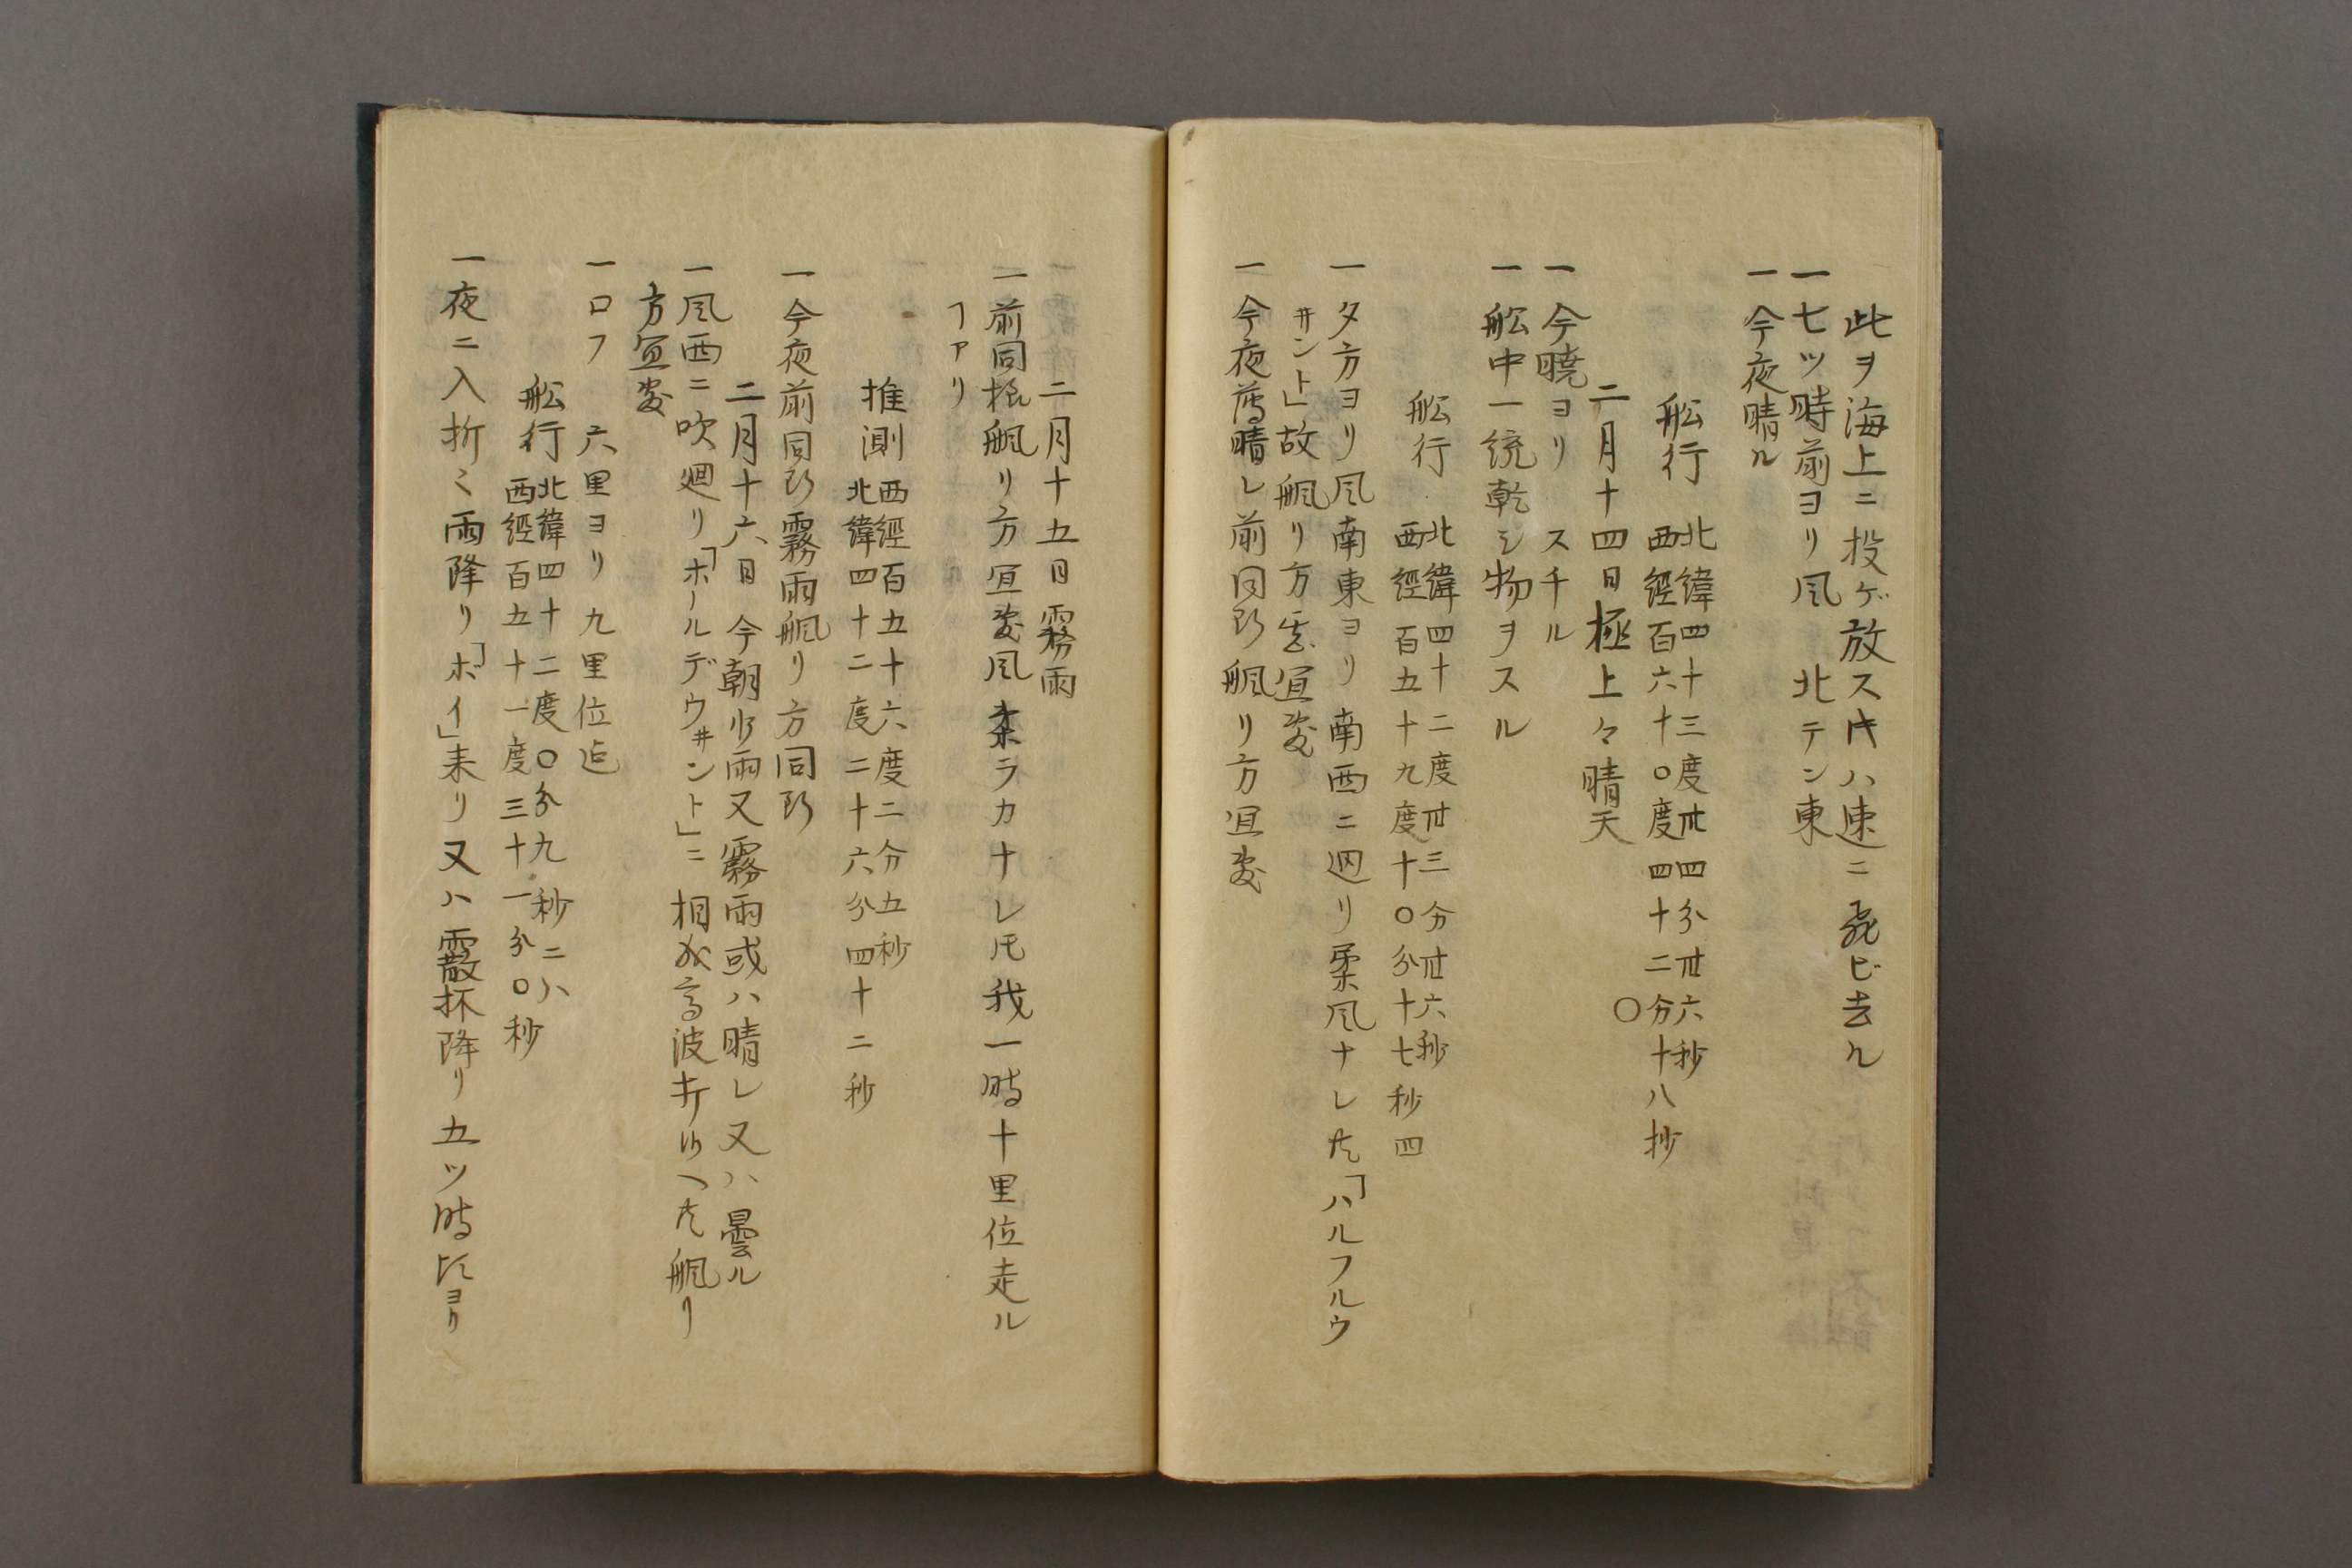 此ヲ海上ニ投ゲ放ス𪜈ハ速ニ飛ビ去ル
一七ツ時前ヨリ風 北テン東
一今夜晴ル
船行 北緯四十三度卅四分卅六秒
西經百六十〇度四十二分十八抄
二月十四日極上々晴天 〇
一今曉ヨリ スチル
一船中一統乾シ物ヲスル
船行 北緯四十二度卅三分卅六秒
西經百五十九度十〇分十七秒四
一夕方ヨリ風南東ヨリ南西ニ廻リ柔風ナレ𪜈「ハルフルウ
ヰント」故艊リ方宜敷
一今夜薄晴レ前同断艊リ方宜敷
二月十五日霧雨
一前同様艊リ方宜敷風柔ラカナレ𪜈我一時十里位走ル
ヿアリ
推測 西經百五十六度二分五秒
北緯四十二度二十六分四十二秒
一今夜前同断霧雨艊リ方同断
二月十六日 今朝少雨又霧雨或ハ晴レ又ハ曇ル
一風西ニ吹廻リ「ホールデウヰント」ニ相成高波
艊リ
方宜敷
一ロフ 六里ヨリ九里位迄
船行 北緯四十二度〇分九秒二八
西經百五十一度三十一分〇秒
一夜ニ入折々雨降リ「ボイ」来リ又ハ霰抔降リ五ツ時頃ヨリ